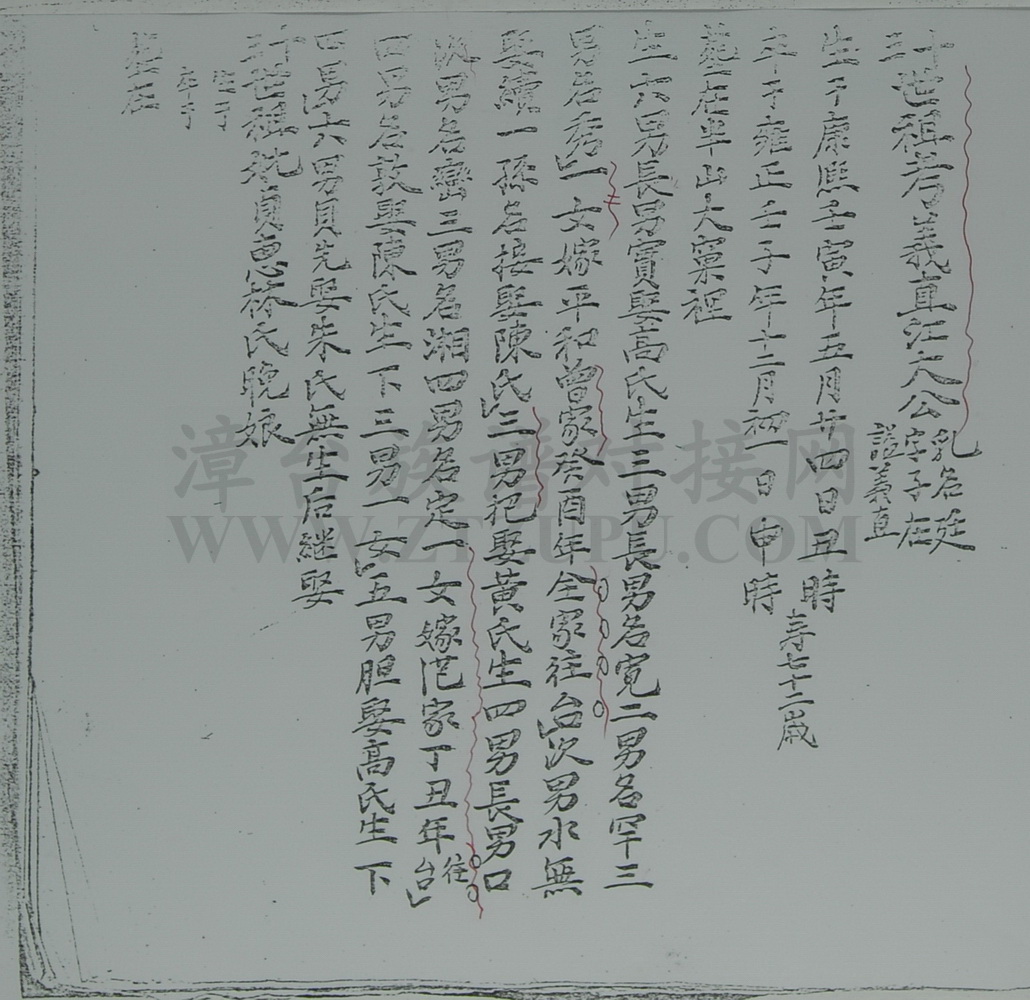 十三世祖考義直江大公 乳名廷 字子在 諡義直
生于康熙壬寅年五月廿四日丑時 壽七十二歲
卒于雍正壬子年十二月初一日申時
葬在半山大窠裡
生六男長男實娶高氏生三男長男名寬二男名罕三
男名秀一女嫁平和曾家癸酉年仝家往台次男水無
娶續一孫名接娶陳氏三男祀娶黃氏生四男長男口
次男名巒三男名湘四男名定一女嫁范家丁丑年往台
四男名敦娶陳氏生下三男一女五男胆娶高氏生下
四男六男貝先娶朱氏無生后繼娶
十三世祖妣貞惠林氏晚娘
生于
卒于
葬在
漳台族譜对接网
WWW.ZTZUPU.COM